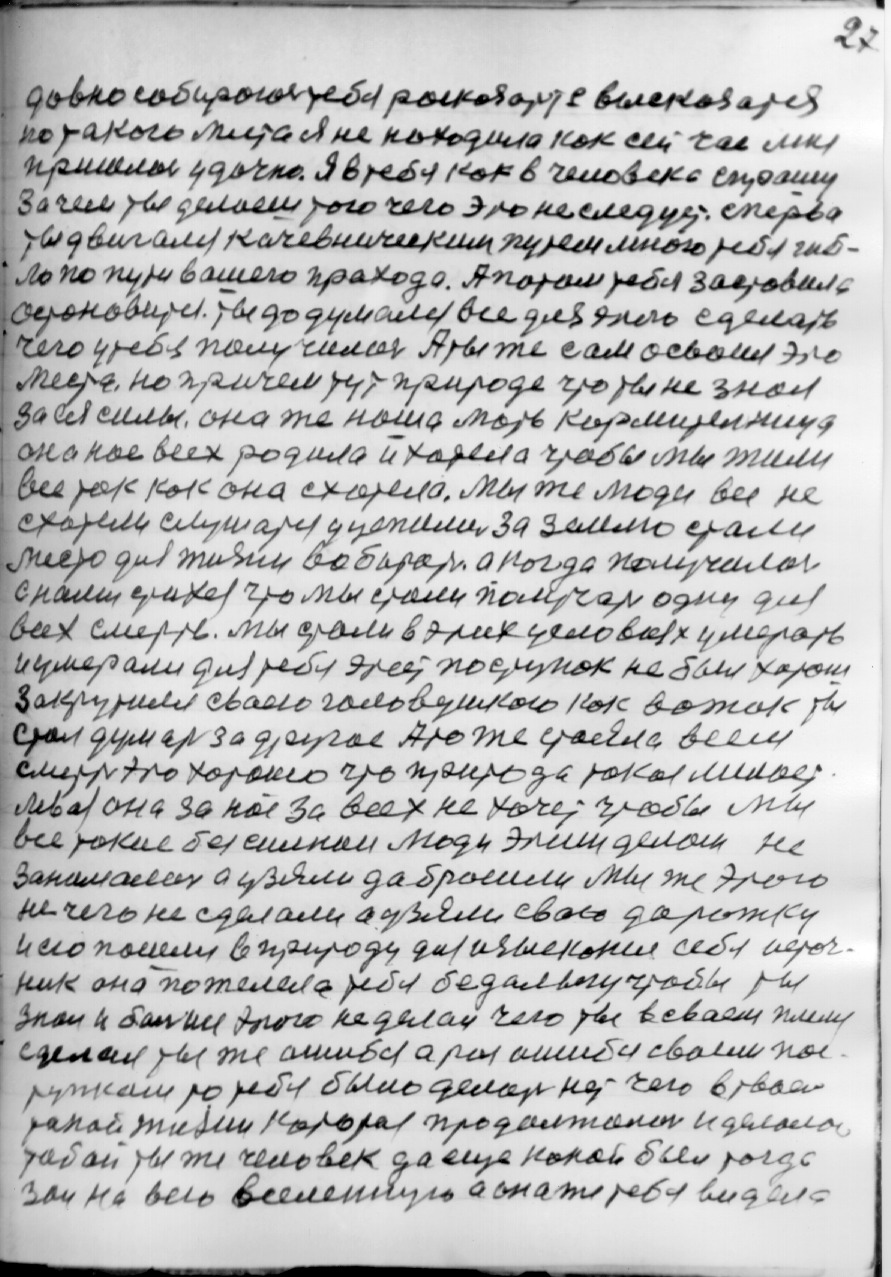 27
довно собирогоя тебя росковате высковатся
но такого места я не находила как сей час мня
пришлося удачно. Я в тебя как в человека спрашу
зачем ты делаеш того чего это не следует. сперва
ты двигался качевническим путем много тебя гиб-
ло по пути вашего прахода. А потом тебя заставила
остоновится. ты додумался все для этого сделать
чего у тебя получилося А ты же сам освоил это
места. но причем тут природе что ты не знал
за ея силы. она же наша мать кормителница
она нас всех родила и хотела чтобы мы жили
все так как она схотела. Мы же люди все не
схотели слушатся уцепилися за землю стали
место для жизни вобирать. а когда получилося
с нами стихея что мы стали получать одну для
всех смерть. мы стали в этих условеях умерать
и умерали для тебя этот поступок не был харош
закрутился своею головушкаю как вожак ты
стал думать за другое А то же стаяла всем
смерть это хорошо что природа такая милост-
ливая она за нас за всех не хочет чтобы мы
все такие безсилнои люди этим делом не
занималися а узяли да бросили мы же этого
не чего не сделали а узяли сваю дарожку
и ею пошли в природу для изыскония себя источ-
ник она пожелела тебя бедалягу чтобы ты
знал и болше этого не делал чего ты в сваем плену
сделал ты же ошибся а раз ошибся своим пос-
тупкам то тебя было делать нет чего в твоей
такой жизни каторая продалжалася и делалося
табой ты же человек да еще какой был тогда
зол на всю вселенную а она же тебя видела